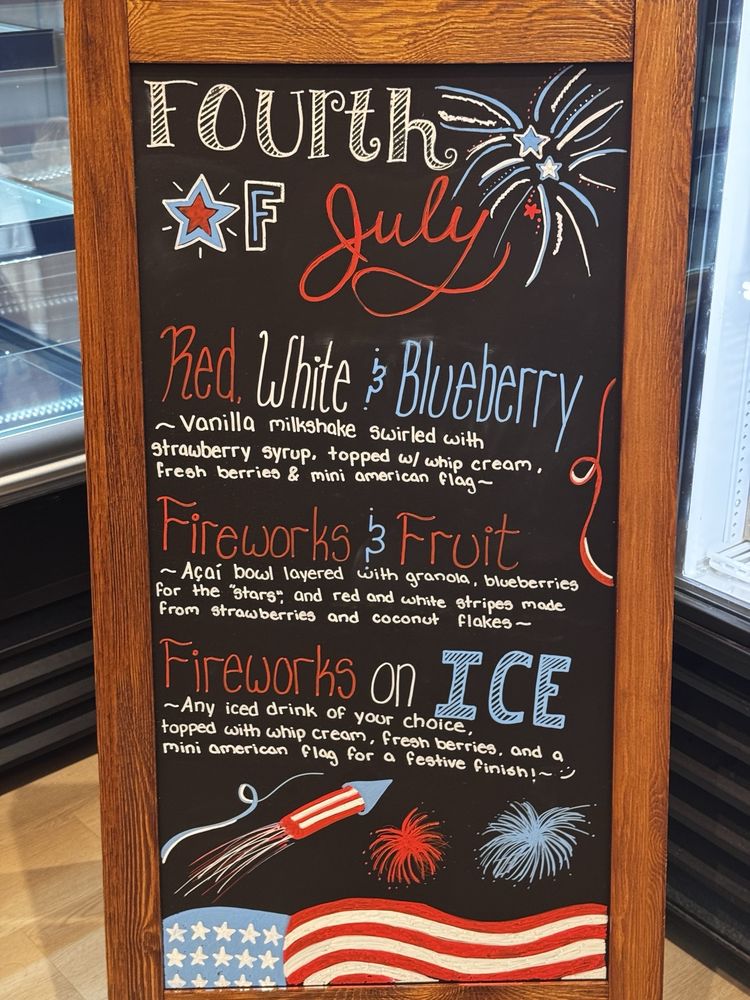 Fourth
OF July
Red, White & Blueberry
~ Vanilla milkshake swirled with
strawberry syrup, topped w/ whip cream,
fresh berries & mini american flag ~
Fireworks & Fruit
~ Açaí bowl layered with granola, blueberries
for the "stars", and red and white stripes made
from strawberries and coconut flakes ~
Fireworks on ICE
~ Any iced drink of your choice,
topped with whip cream, fresh berries, and a
mini american flag for a festive finish! ~ :)